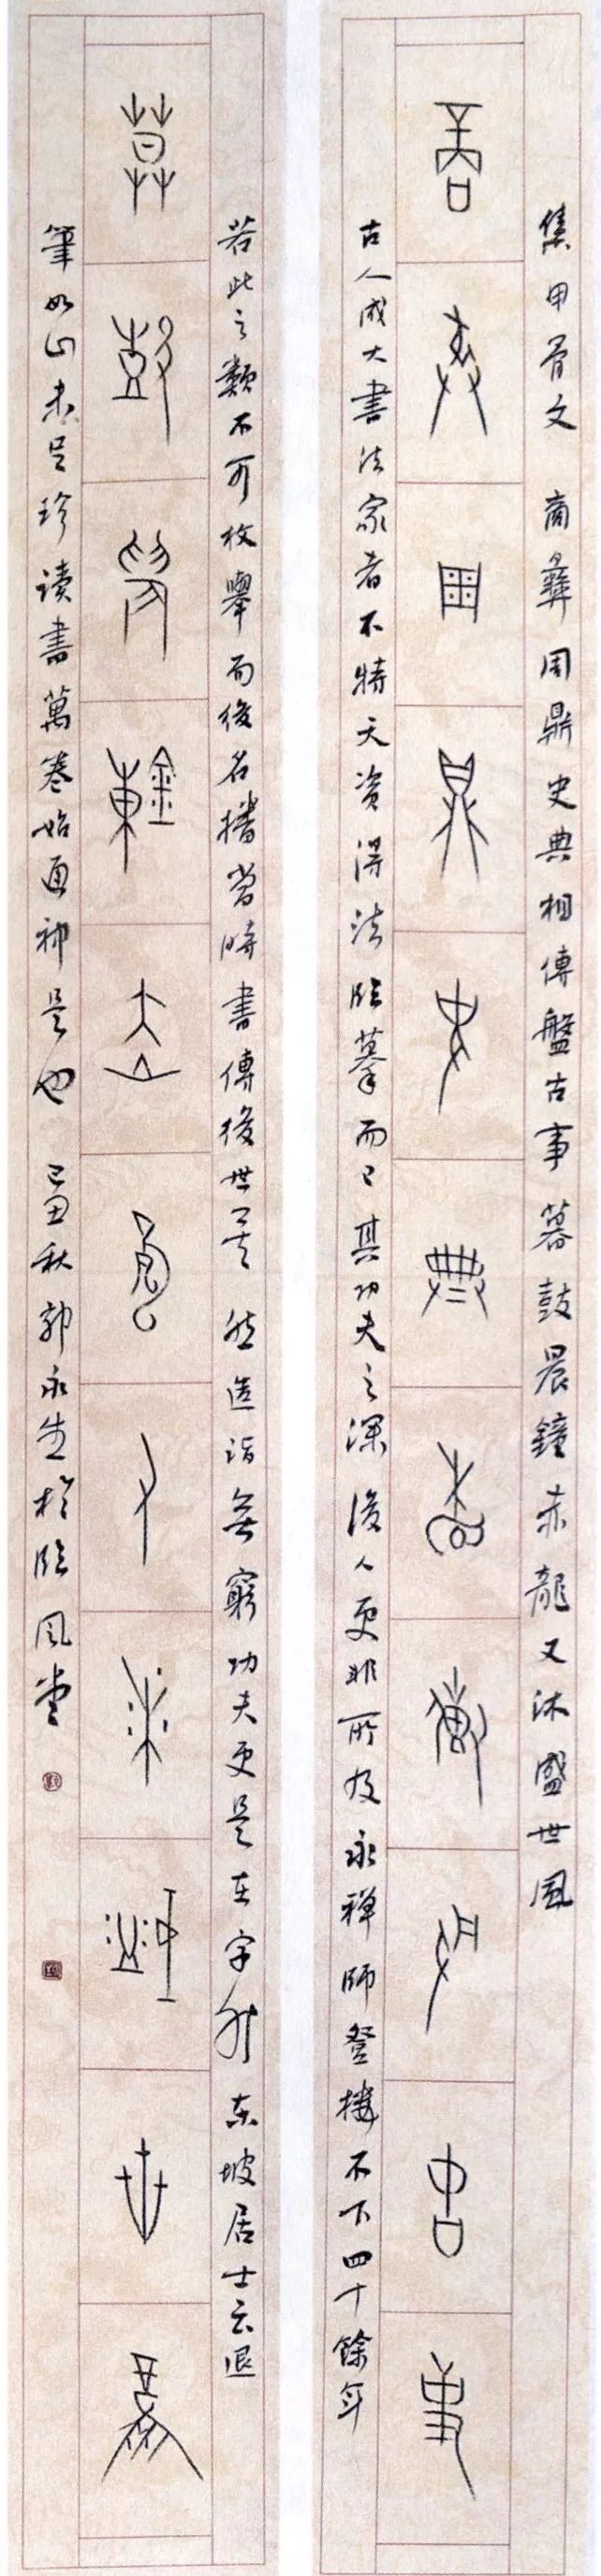 集甲骨文 商彝周鼎史典相傳盤古事 暮鼓晨鐘赤龍又沐盛世風
商彝周鼎史典相傳盤古事
古人成大書法家者不特天資得法臨摹而已其功夫之深後人更非所及永禪師登樓不下四十餘年
若此之類不可枚舉而後名播當時書傳後世矣然造詣無窮功夫更是在字外東坡居士云退
暮鼓晨鐘赤龍又沐盛世風
筆如山未足珍讀書萬卷始通神是也 己丑秋郭永生於臨風堂